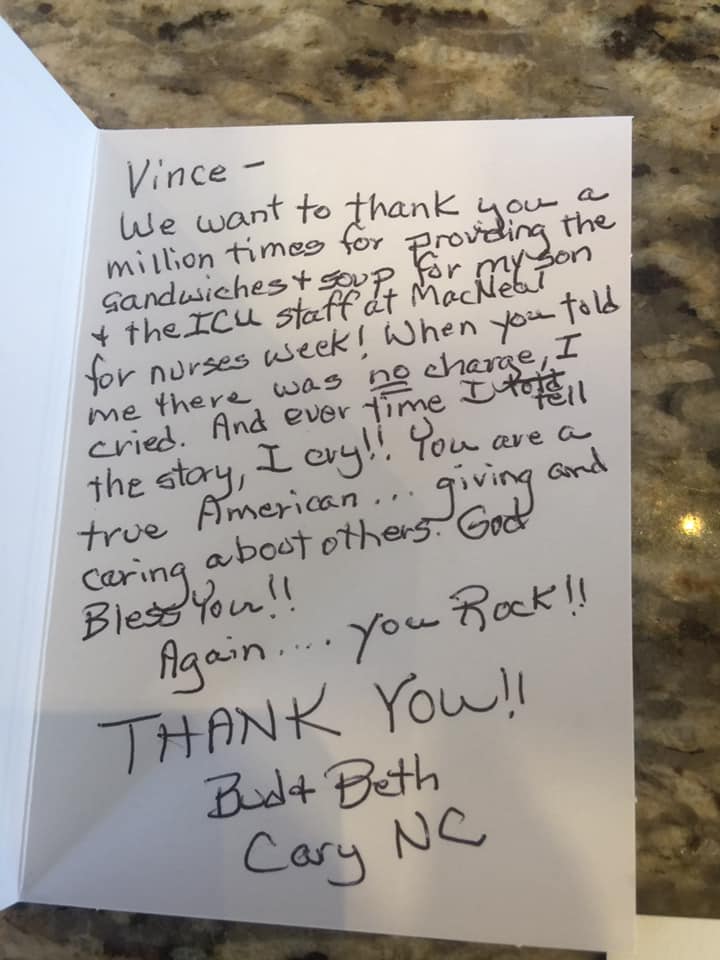 Vince -
We want to thank you a
million times for providing the
sandwiches + soup for my son
+ the ICU staff at MacNeal
for nurses week! When you told
me there was no charge, I
cried. And ever time I told tell
the story, I cry!! You are a
true American... giving and
caring about others. God
Bless You!!
Again.... you Rock!!
THANK YOU!!
Bud + Beth
Cary NC